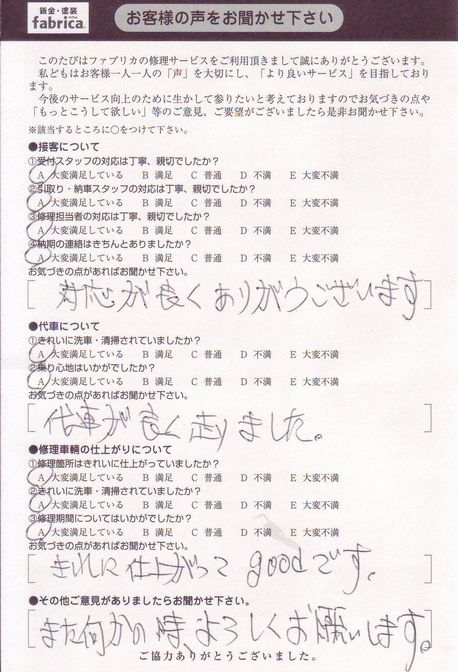 鈑金・塗装
fabrica.
お客様の声をお聞かせ下さい
このたびはファブリカの修理サービスをご利用頂きまして誠にありがとうございます。
私どもはお客様一人一人の「声」を大切にし、「より良いサービス」を目指しており
ます。
今後のサービス向上のために生かして参りたいと考えておりますのでお気づきの点や
「もっとこうして欲しい」等のご意見、ご要望がございましたら是非お聞かせ下さい。
※該当するところに○をつけて下さい。
●接客について
①受付スタッフの対応は丁寧、親切でしたか?
A 大変満足している B 満足 C 普通 D 不満 E 大変不満
②引取り・納車スタッフの対応は丁寧、親切でしたか?
A 大変満足している B 満足 C 普通 D 不満 E 大変不満
③修理担当者の対応は丁寧、親切でしたか?
A 大変満足している B 満足 C 普通 D 不満 E 大変不満
④納期の連絡はきちんとありましたか?
A 大変満足している B 満足 C 普通 D 不満 E 大変不満
お気づきの点があればお聞かせ下さい。
対応が良くありがうございます
●代車について
①きれいに洗車・清掃されていましたか?
A 大変満足している B 満足 C 普通 D 不満 E 大変不満
②乗り心地はいかがでしたか?
A 大変満足している B 満足 C 普通 D 不満 E 大変不満
お気づきの点があればお聞かせ下さい。
代車が良く走りました。
●修理車輌の仕上がりについて
①修理箇所はきれいに仕上がっていましたか?
A 大変満足している B 満足 C 普通 D 不満 E 大変不満
②きれいに洗車・清掃されていましたか?
A 大変満足している B 満足 C 普通 D 不満 E 大変不満
③修理期間についてはいかがでしたか?
A 大変満足している B 満足 C 普通 D 不満 E 大変不満
お気づきの点があればお聞かせ下さい。
きれいに仕上がって goodです。
●その他ご意見がありましたらお聞かせ下さい。
また何かの時、よろしくお願いします。
ご協力ありがとうございました。